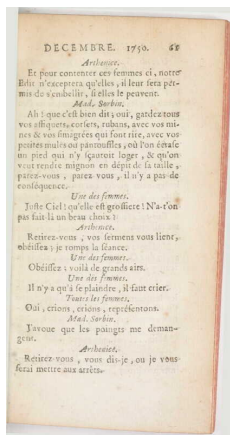 DECEMBRE. 1750. 65
Arthenice.
Et pour contenter ces femmes ci, notre
Edit n'exceptera qu'elles, il leur sera per-
mis de s'embellir, si elles le peuvent.
Mad. Sorbin.
Ah ! que c'est bien dit, oui, gardez tous
vos affiquets, corsets, rubans, avec vos mi-
nes & vos simagrées qui font rire, avec vos
petites mules ou pantouffles, où l'on écrase
un pied qui n'y sçauroit loger, & qu'on
veut rendre mignon en dépit de sa taille,
parez-vous, parez vous, il n'y a pas de
conséquence.
Une des femmes.
Juste Ciel ! qu'elle est grossiere ! N'a-t'on
pas fait là un beau choix ?
Arthenice.
Retirez-vous, vos sermens vous lient,
obéissez ; je romps la séance.
Une des femmes.
Obéissez ; voilà de grands airs.
Une des femmes.
Il n'y a qu'à se plaindre, il faut crier.
Toutes les femmes.
Oui, crions, crions, représentons.
Mad. Sorbin.
J'avoue que les poingts me deman-
gent.
Arthenice.
Retirez-vous, vous dis-je, ou je vous
ferai mettre aux arrêts.